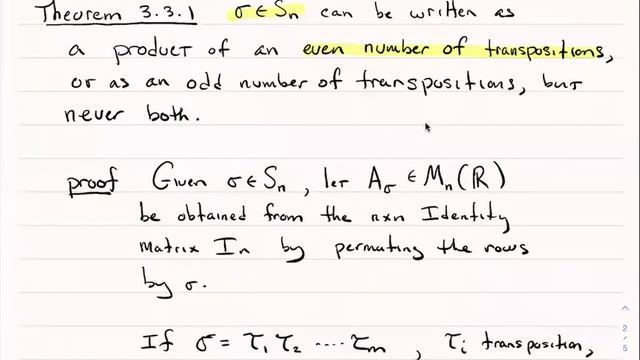 Theorem 3.3.1 σ ∈ Sn can be written as
a product of an even number of transpositions,
or as an odd number of transpositions, but
never both.
proof Given σ ∈ Sn, let Aσ ∈ Mn(ℝ)
be obtained from the nxn Identity
Matrix In by permuting the rows
by σ.
If σ = τ1 τ2 ····· τm, τi transposition,
2
/
5